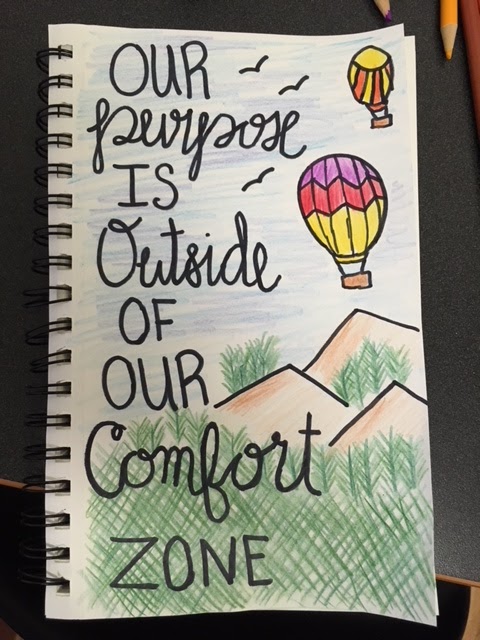 OUR
purpose
IS
Outside
OF
OUR
Comfort
ZONE